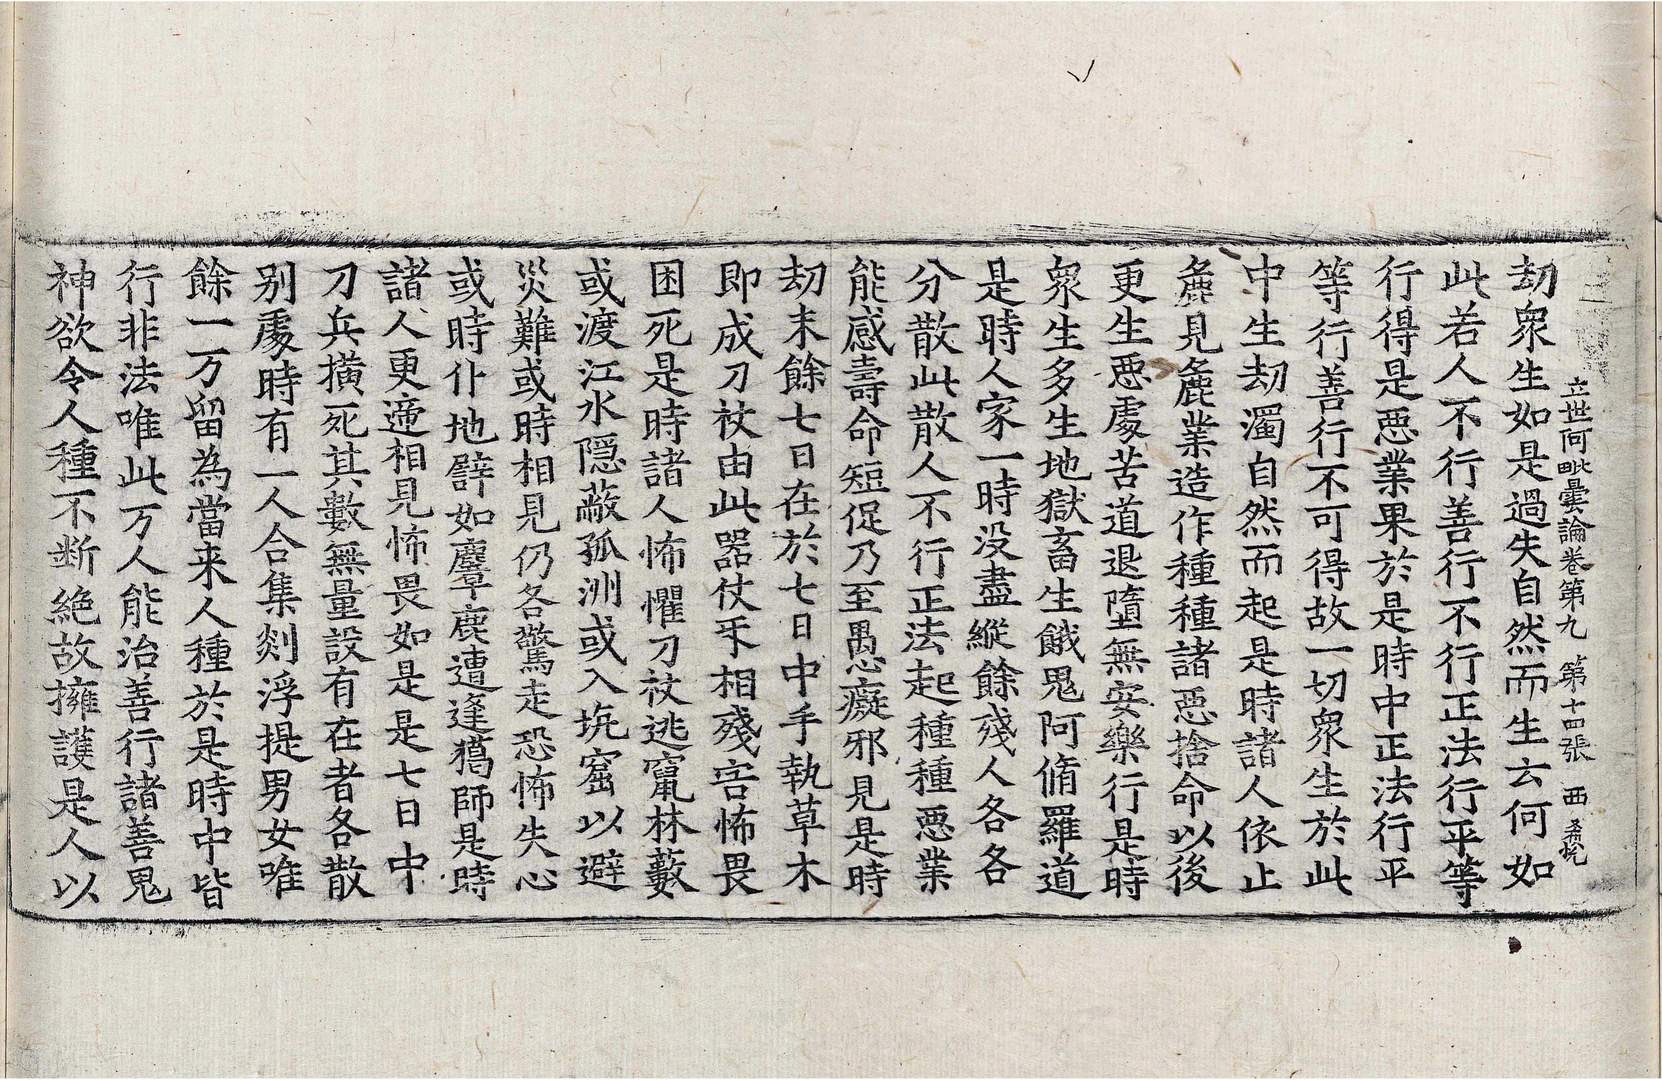 立世阿毗曇論卷第九 第十四張 西
劫衆生如是過失自然而生云何如
此若人不行善行不行正法行平等
行得是惡業果於是時中正法行平
等行善行不可得故一切衆生於此
中生劫濁自然而起是時諸人依止
麁見麁業造作種種諸惡捨命以後
更生惡處苦道退墮無安樂行是時
衆生多生地獄畜生餓鬼阿脩羅道
是時人家一時没盡縱餘殘人各各
分散此散人不行正法起種種惡業
能感壽命短促乃至愚癡邪見是時
劫末餘七日在於七日中手執草木
即成刀杖由此器仗𠄔相殘害怖畏
困死是時諸人怖懼刀杖逃竄林藪
或渡江水隱蔽孤洲或入坑窟以避
災難或時相見仍各驚走恐怖失心
或時仆地譬如麞鹿遭逢獵師是時
諸人更遞相見怖畏如是是七日中
刀兵横死其數無量設有在者各散
别處時有一人合集剡浮提男女唯
餘一万留為當来人種於是時中皆
行非法唯此万人能治善行諸善鬼
神欲令人種不断絶故擁護是人以